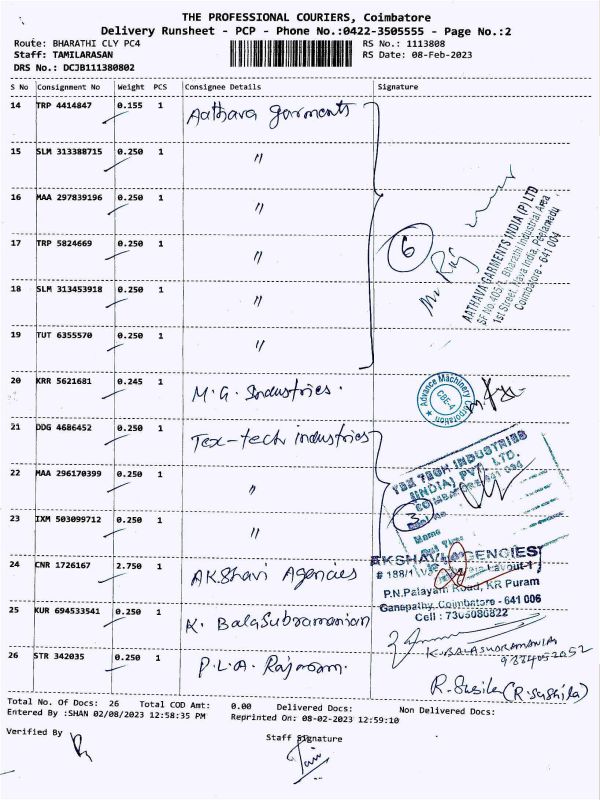 THE PROFESSIONAL COURIERS, Coimbatore
Delivery Runsheet - PCP - Phone No.:0422-3505555 - Page No.:2
Route: BHARATHI CLY PC4 RS No.: 1113808
Staff: TAMILARASAN RS Date: 08-Feb-2023
DRS No.: DCJB111380802
S No Consignment No Weight PCS Consignee Details Signature
14 TRP 4414847 0.155 1 Aathava garments
15 SLM 313388715 0.250 1 "
16 MAA 297839196 0.250 1 "
17 TRP 5824669 0.250 1 "
18 SLM 313453918 0.250 1 "
19 TUT 6355570 0.250 1 "
6
AATHAVA GARMENTS INDIA (P) LTD
SF No.405/2, Bharathi Industrial Area
1st Street, Nava India, Peelamedu
Coimbatore - 641 004
20 KRR 5621681 0.245 1 M.G. Industries.
Advance Machinery Corporation
CBE-4
21 DDG 4686452 0.250 1 Tex-tech industries
22 MAA 296170399 0.250 1 "
23 IXM 503099712 0.250 1 "
TEX TECH INDUSTRIES
(INDIA) PVT. LTD.
COIMBATORE - 641
3
Name
24 CNR 1726167 2.750 1 AKShavi Agencies
AKSHAVI AGENCIES
# 188/1 Layout-1
P.N.Palayam Road, KR Puram
Ganapathy, Coimbatore - 641 006
Cell : 7305086822
25 KUR 694533541 0.250 1 K. BalaSubramanian
K. BALASUBRAMANIA
9884052952
26 STR 342035 0.250 1 P.L.A. Rajaram.
R. Susila (R. Sushila)
Total No. Of Docs: 26 Total COD Amt: 0.00 Delivered Docs: Non Delivered Docs:
Entered By :SHAN 02/08/2023 12:58:35 PM Reprinted On: 08-02-2023 12:59:10
Verified By Staff Signature